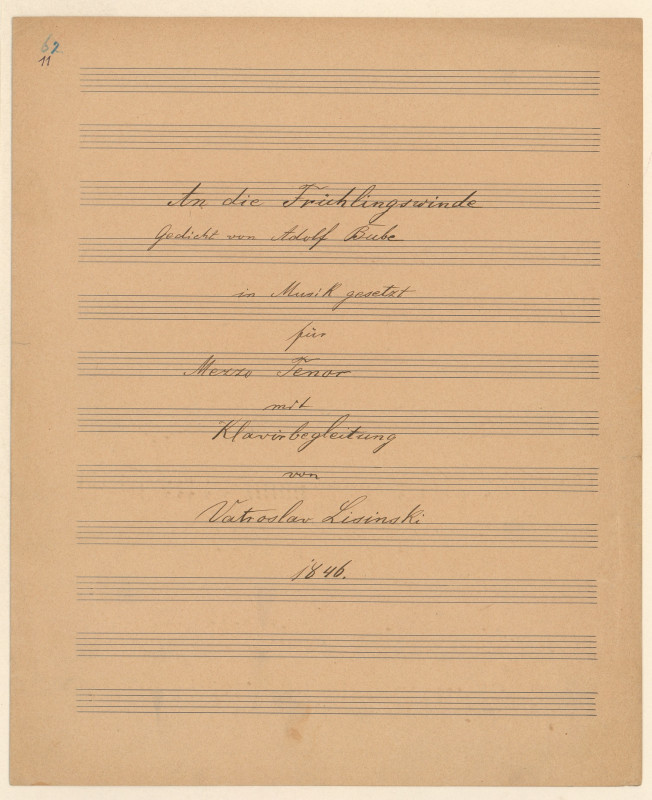 62
11
An die Frühlingswinde
Gedicht von Adolf Bube
in Musik gesetzt
für
Mezzo Tenor
mit
Klavirbegleitung
von
Vatroslav Lisinski
1846.